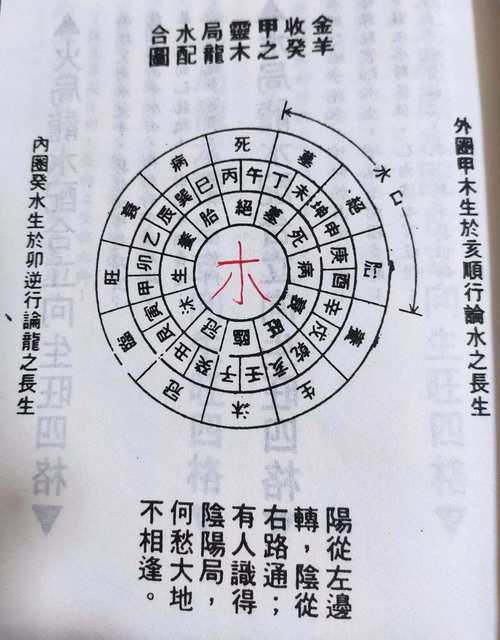 金羊
收癸
甲之
靈木
局龍
水配
合圖
外圈甲木生於亥順行論水之長生
內圈癸水生於卯逆行論龍之長生
水口
死
墓
絕
胎
養
生
沐
冠
臨
旺
衰
病
丙
午
丁
未
坤
申
庚
酉
辛
戌
乾
亥
壬
子
癸
丑
艮
寅
甲
卯
乙
辰
巽
巳
絕
墓
死
病
衰
旺
臨
冠
沐
生
養
胎
木
陽從左邊
轉,陰從
右路通;
有人識得
陰陽局,
何愁大地
不相逢。